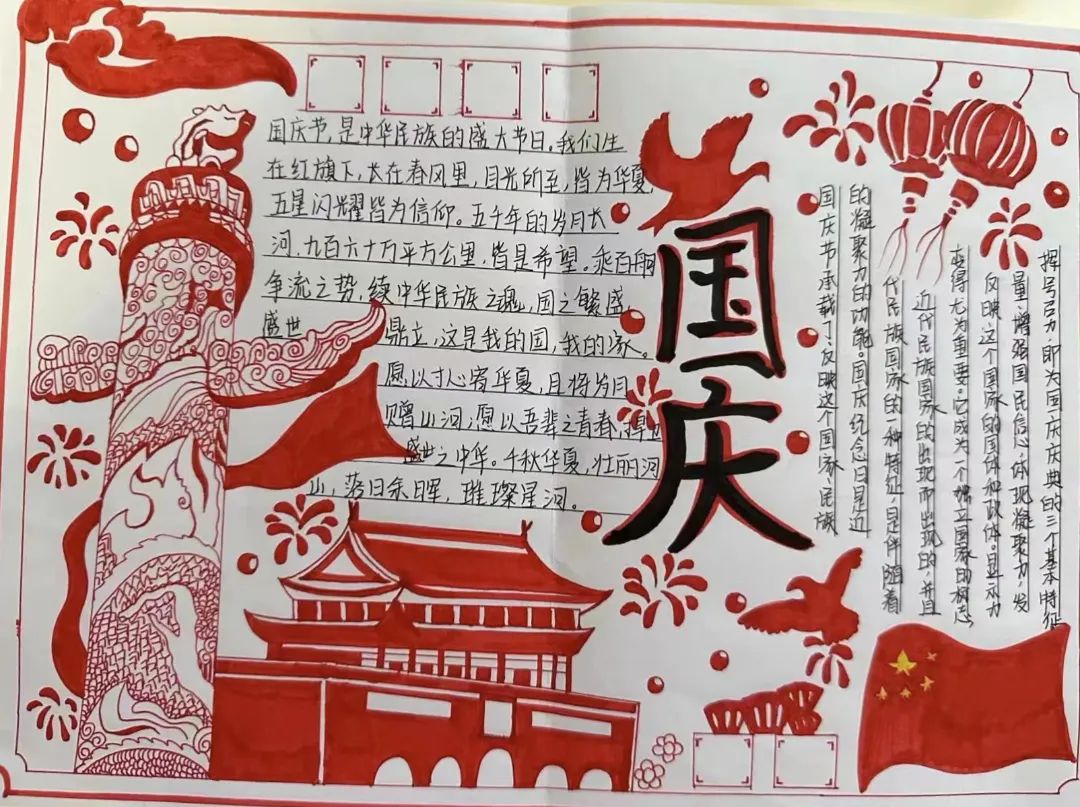 国庆节,是中华民族的盛大节日,我们生
在红旗下,长在春风里,目光所至,皆为华夏,
五星闪耀皆为信仰。五千年的岁月长
河,九百六十万平方公里,皆是希望。乘百舸
争流之势,续中华民族之魂,国之繁盛
盛世 鼎立,这是我的国,我的家。
愿以寸心寄华夏,且将岁月
赠山河;愿以吾辈之青春,捍卫
盛世之中华。千秋华夏,壮丽河
山,落日余晖,璀璨星河。
国庆
国庆节承载了、反映这个国家、民族
的凝聚力的功能。国庆纪念日是近
代民族国家的一种特征,是伴随着
近代民族国家的出现而出现的,并且
变得尤为重要。它成为一个独立国家的标志,
反映这个国家的国体和政体。显示力
量、增强国民信心,体现凝聚力,发
挥号召力,即为国庆庆典的三个基本特征